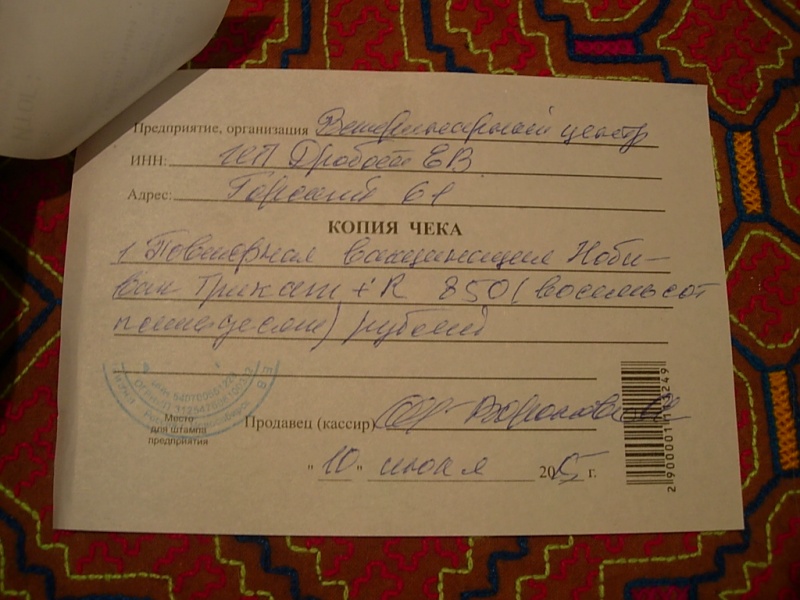 Предприятие, организация Ветеринарный центр
ИНН: ИП Дробот ЕВ
Адрес: Горский 61
КОПИЯ ЧЕКА
1 Повторная вакцинация Ноби-
вак Трикат + R 850 (восемьсот
пятьдесят) рублей
Место
для штампа
предприятия
Продавец (кассир)
"10" июля 2015 г.
2 900001 113249